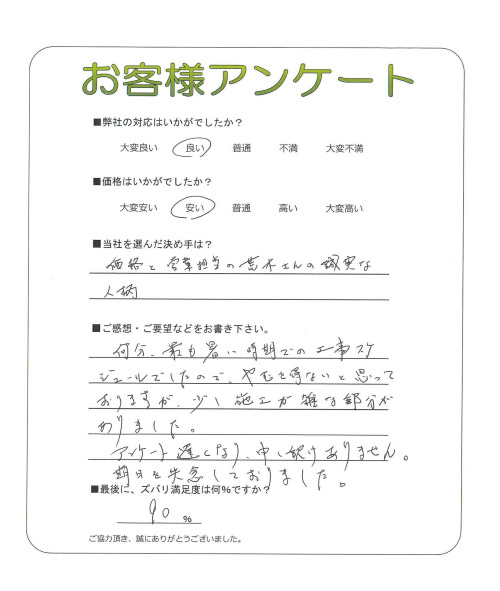 お客様アンケート
■弊社の対応はいかがでしたか？
大変良い 良い 普通 不満 大変不満
■価格はいかがでしたか？
大変安い 安い 普通 高い 大変高い
■当社を選んだ決め手は？
価格と営業担当の荒木さんの誠実な
人柄
■ご感想・ご要望などをお書き下さい。
何分、最も暑い時期での工事スケ
ジュールでしたので、やむを得ないと思って
おりますが、少し施工が雑な部分が
ありました。
アンケート遅くなり、申し訳ありません。
期日を失念しておりました。
■最後に、ズバリ満足度は何%ですか？
90 %
ご協力頂き、誠にありがとうございました。